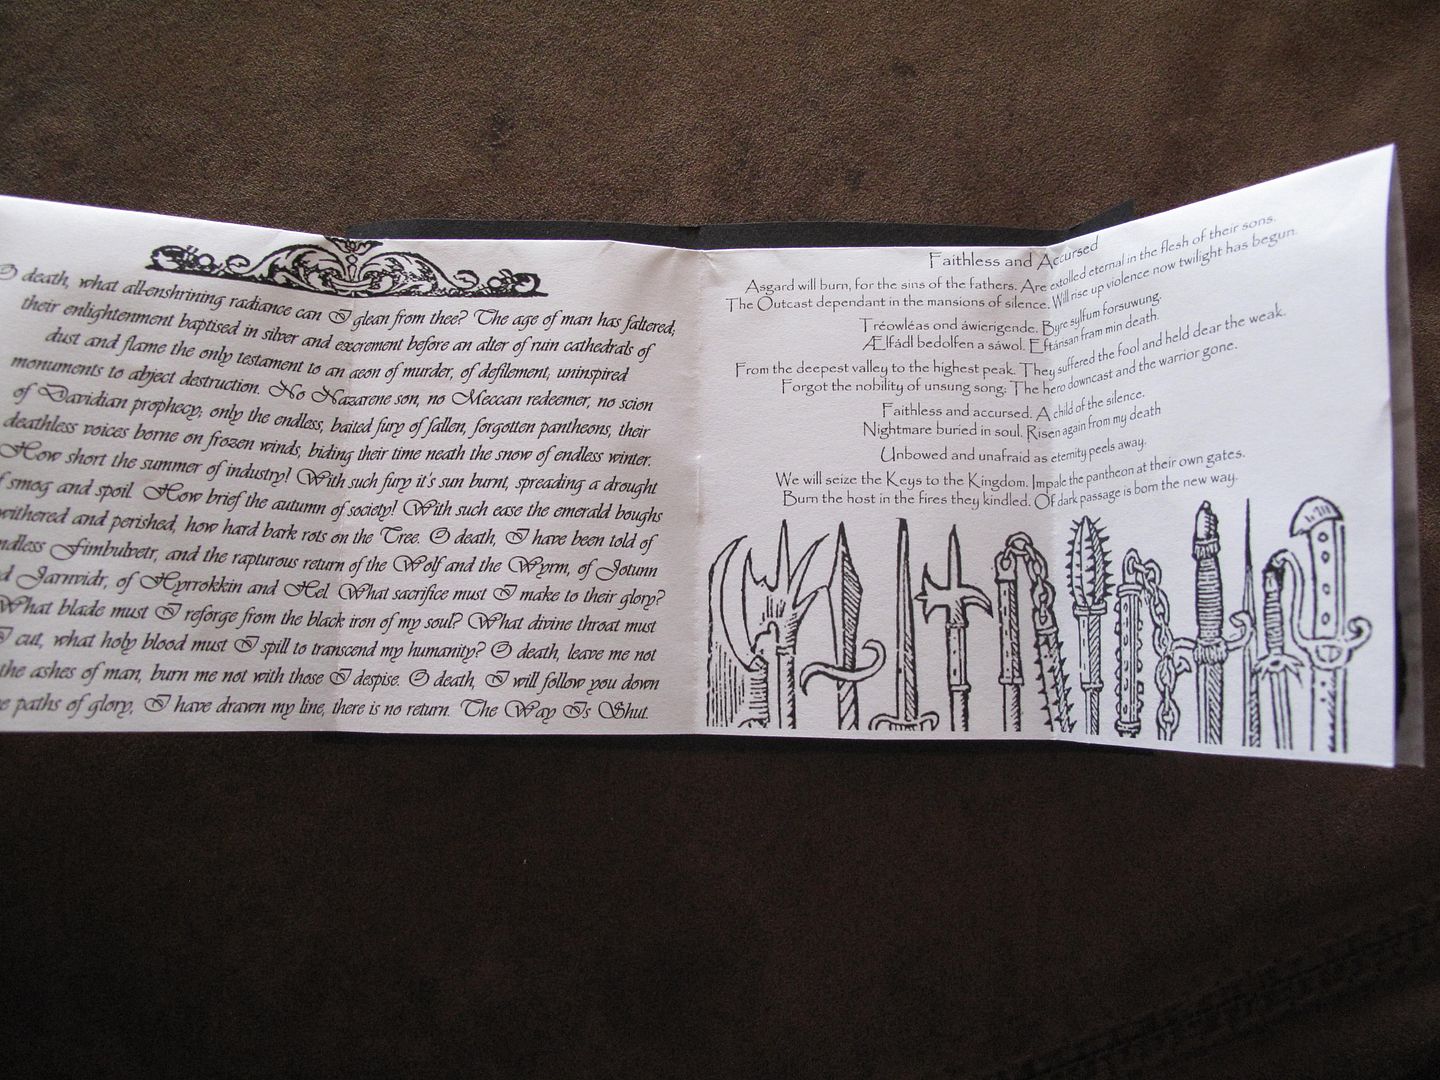 O death, what all-enshrining radiance can I glean from thee? The age of man has faltered;
their enlightenment baptised in silver and execrement before an alter of ruin cathedrals of
dust and flame the only testament to an aeon of murder, of defilement, uninspired
monuments to abject destruction. No Nazarene son, no Meccan redeemer, no scion
of Davidian prophecy; only the endless, baited fury of fallen, forgotten pantheons, their
deathless voices borne on frozen winds, biding their time neath the snow of endless winter.
How short the summer of industry! With such fury it's sun burnt, spreading a drought
of smog and spoil. How brief the autumn of society! With such ease the emerald boughs
withered and perished, how hard bark rots on the Tree. O death, I have been told of
endless Fimbulvetr, and the rapturous return of the Wolf and the Wyrm, of Jotunn
Jarnvidr, of Hyrrokkin and Hel. What sacrifice must I make to their glory?
What blade must I reforge from the black iron of my soul? What divine throat must
I cut, what holy blood must I spill to transcend my humanity? O death, leave me not
the ashes of man, burn me not with those I despise. O death, I will follow you down
paths of glory, I have drawn my line, there is no return. The Way Is Shut.
Faithless and Accursed
Asgard will burn, for the sins of the fathers. Are extolled eternal in the flesh of their sons.
The Outcast dependant in the mansions of silence. Will rise up violence now twilight has begun.
Tréowléas ond áwierigende. Byre sylfum forsuwung.
Ælfádl bedolfen a sáwol. Eftánsan fram min death.
From the deepest valley to the highest peak. They suffered the fool and held dear the weak.
Forgot the nobility of unsung song; The hero downcast and the warrior gone.
Faithless and accursed. A child of the silence.
Nightmare buried in soul. Risen again from my death
Unbowed and unafraid as eternity peels away.
We will seize the Keys to the Kingdom. Impale the pantheon at their own gates.
Burn the host in the fires they kindled. Of dark passage is born the new way.